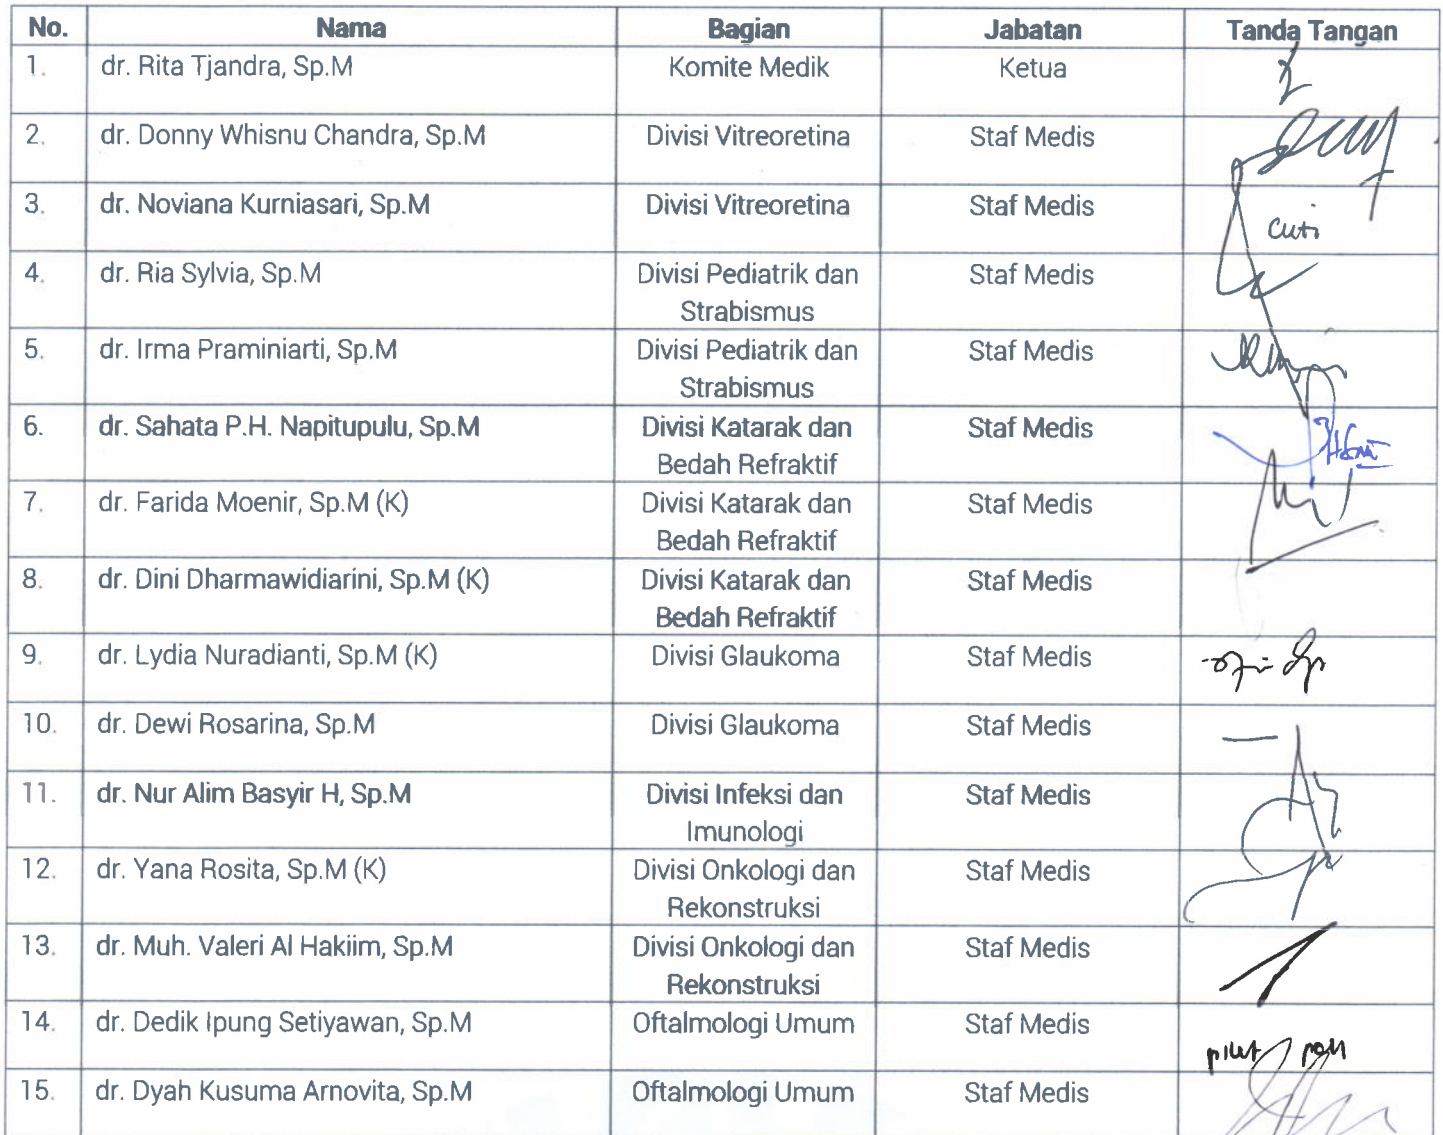 No. Nama Bagian Jabatan Tanda Tangan
1. dr. Rita Tjandra, Sp.M Komite Medik Ketua
2. dr. Donny Whisnu Chandra, Sp.M Divisi Vitreoretina Staf Medis
3. dr. Noviana Kurniasari, Sp.M Divisi Vitreoretina Staf Medis
cuti
4. dr. Ria Sylvia, Sp.M Divisi Pediatrik dan Staf Medis
Strabismus
5. dr. Irma Praminiarti, Sp.M Divisi Pediatrik dan Staf Medis
Strabismus
6. dr. Sahata P.H. Napitupulu, Sp.M Divisi Katarak dan Staf Medis
Bedah Refraktif
7. dr. Farida Moenir, Sp.M (K) Divisi Katarak dan Staf Medis
Bedah Refraktif
8. dr. Dini Dharmawidiarini, Sp.M (K) Divisi Katarak dan Staf Medis
Bedah Refraktif
9. dr. Lydia Nuradianti, Sp.M (K) Divisi Glaukoma Staf Medis
10. dr. Dewi Rosarina, Sp.M Divisi Glaukoma Staf Medis
11. dr. Nur Alim Basyir H, Sp.M Divisi Infeksi dan Staf Medis
Imunologi
12. dr. Yana Rosita, Sp.M (K) Divisi Onkologi dan Staf Medis
Rekonstruksi
13. dr. Muh. Valeri Al Hakiim, Sp.M Divisi Onkologi dan Staf Medis
Rekonstruksi
14. dr. Dedik Ipung Setiyawan, Sp.M Oftalmologi Umum Staf Medis
15. dr. Dyah Kusuma Arnovita, Sp.M Oftalmologi Umum Staf Medis